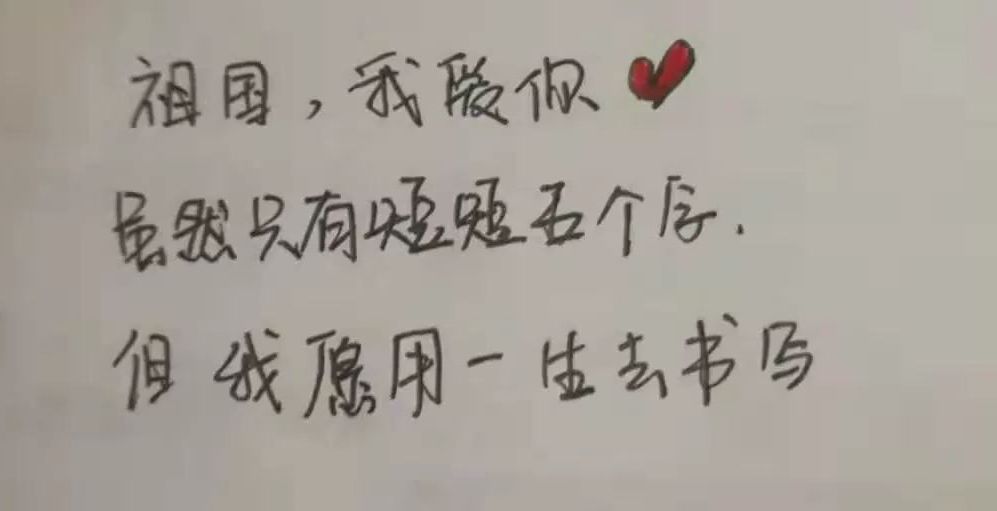 祖国，我爱你
虽然只有短短五个字.
但我愿用一生去书写